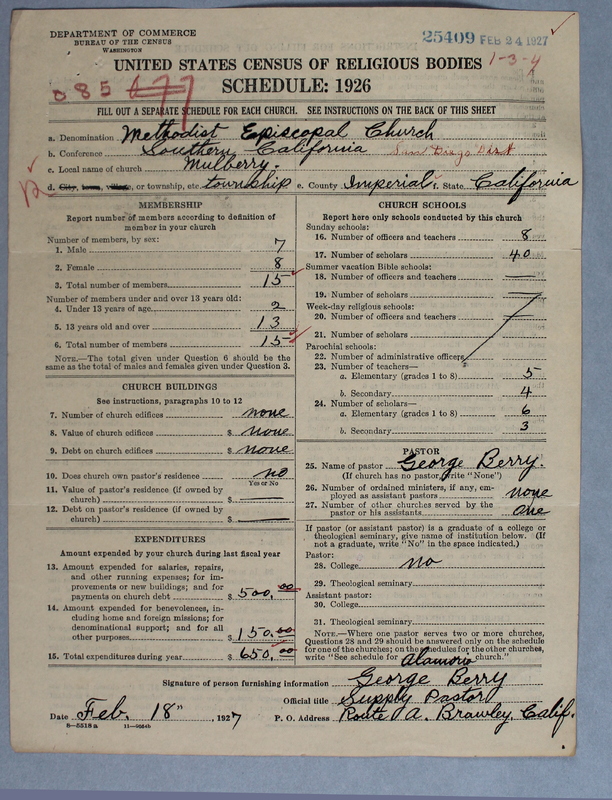 DEPARTMENT OF COMMERCE
BUREAU OF THE CENSUS
WASHINGTON
25409 FEB 24 1927
UNITED STATES CENSUS OF RELIGIOUS BODIES
1-3-4
SCHEDULE: 1926
085 677
FILL OUT A SEPARATE SCHEDULE FOR EACH CHURCH. SEE INSTRUCTIONS ON THE BACK OF THIS SHEET
a. Denomination Methodist Episcopal Church
b. Conference Southern California San Diego Dist
c. Local name of church Mulberry.
d. City, town, village, or township, etc. township e. County Imperial f. State California
R
MEMBERSHIP
Report number of members according to definition of
member in your church
Number of members, by sex:
1. Male 7
2. Female 8
3. Total number of members 15
Number of members under and over 13 years old:
4. Under 13 years of age 2
5. 13 years old and over 13
6. Total number of members 15
NOTE.—The total given under Question 6 should be
the same as the total of males and females given under Question 3.
CHURCH BUILDINGS
See instructions, paragraphs 10 to 12
7. Number of church edifices none
8. Value of church edifices $ none
9. Debt on church edifices $ none
10. Does church own pastor's residence no
Yes or No
11. Value of pastor's residence (if owned by
church) $ —
12. Debt on pastor's residence (if owned by
church) $ —
EXPENDITURES
Amount expended by your church during last fiscal year
13. Amount expended for salaries, repairs,
and other running expenses; for im-
provements or new buildings; and for
payments on church debt $ 500.00
14. Amount expended for benevolences, in-
cluding home and foreign missions; for
denominational support; and for all
other purposes $ 150.00
15. Total expenditures during year $ 650.00
CHURCH SCHOOLS
Report here only schools conducted by this church
Sunday schools:
16. Number of officers and teachers 8
17. Number of scholars 40
Summer vacation Bible schools:
18. Number of officers and teachers —
19. Number of scholars —
Week-day religious schools:
20. Number of officers and teachers
21. Number of scholars
Parochial schools:
22. Number of administrative officers
23. Number of teachers—
a. Elementary (grades 1 to 8) 5
b. Secondary 4
24. Number of scholars—
a. Elementary (grades 1 to 8) 6
b. Secondary 3
PASTOR
25. Name of pastor George Berry.
(If church has no pastor, write "None")
26. Number of ordained ministers, if any, em-
ployed as assistant pastors none
27. Number of other churches served by the
pastor or his assistants one
If pastor (or assistant pastor) is a graduate of a college or
theological seminary, give name of institution below. (If
not a graduate, write "No" in the space indicated.)
Pastor:
28. College no
29. Theological seminary
Assistant pastor:
30. College
31. Theological seminary
NOTE.—Where one pastor serves two or more churches,
Questions 28 and 29 should be answered only on the schedule
for one of the churches; on the schedules for the other churches,
write "See schedule for Alamorio church."
Signature of person furnishing information George Berry
Official title Supply Pastor
Date Feb. 18", 1927 P. O. Address Route A. Brawley, Calif.
8—5518 a 11—9864b